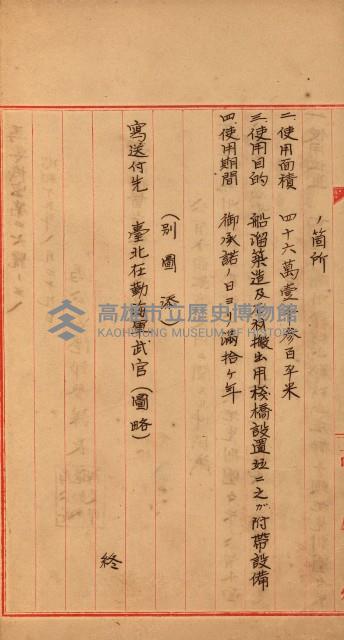 ノ箇所
二、使用面積 四十六萬壹千參百平米
三、使用目的 船溜築造及資材搬出用棧橋設置並ニ之ガ附帶設備
四、使用期間 御承諾ノ日ヨリ滿拾ケ年
(別圖添)
寫送付先 臺北在勤海軍武官(圖略)
終
高雄市立歷史博物館
KAOHSIUNG MUSEUM OF HISTORY